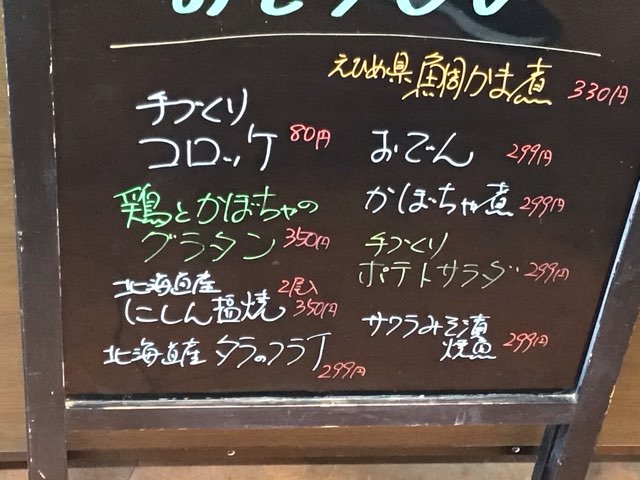 えひめ県 鯛かま煮 330円
手づくり
コロッケ 80円
鶏とかぼちゃの
グラタン 350円
北海道産 2尾入
にしん塩焼 350円
北海道産 タラのフライ
299円
おでん 299円
かぼちゃ煮 299円
手づくり
ポテトサラダ 299円
サワラみそ漬
焼魚 299円